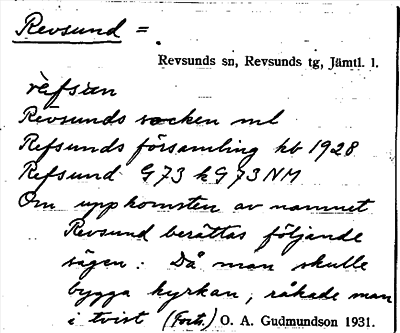 Revsund =
Revsunds sn, Revsunds tg, Jämtl. l.
Revsunds socken ml
Refsunds församling kb 1928
Refsund G73 k G73 NM
Om uppkomsten av namnet
Revsund berättas följande
sägen: Då man skulle
bygga kyrkan, råkade man
i tvist (Forts.) O. A. Gudmundson 1931.